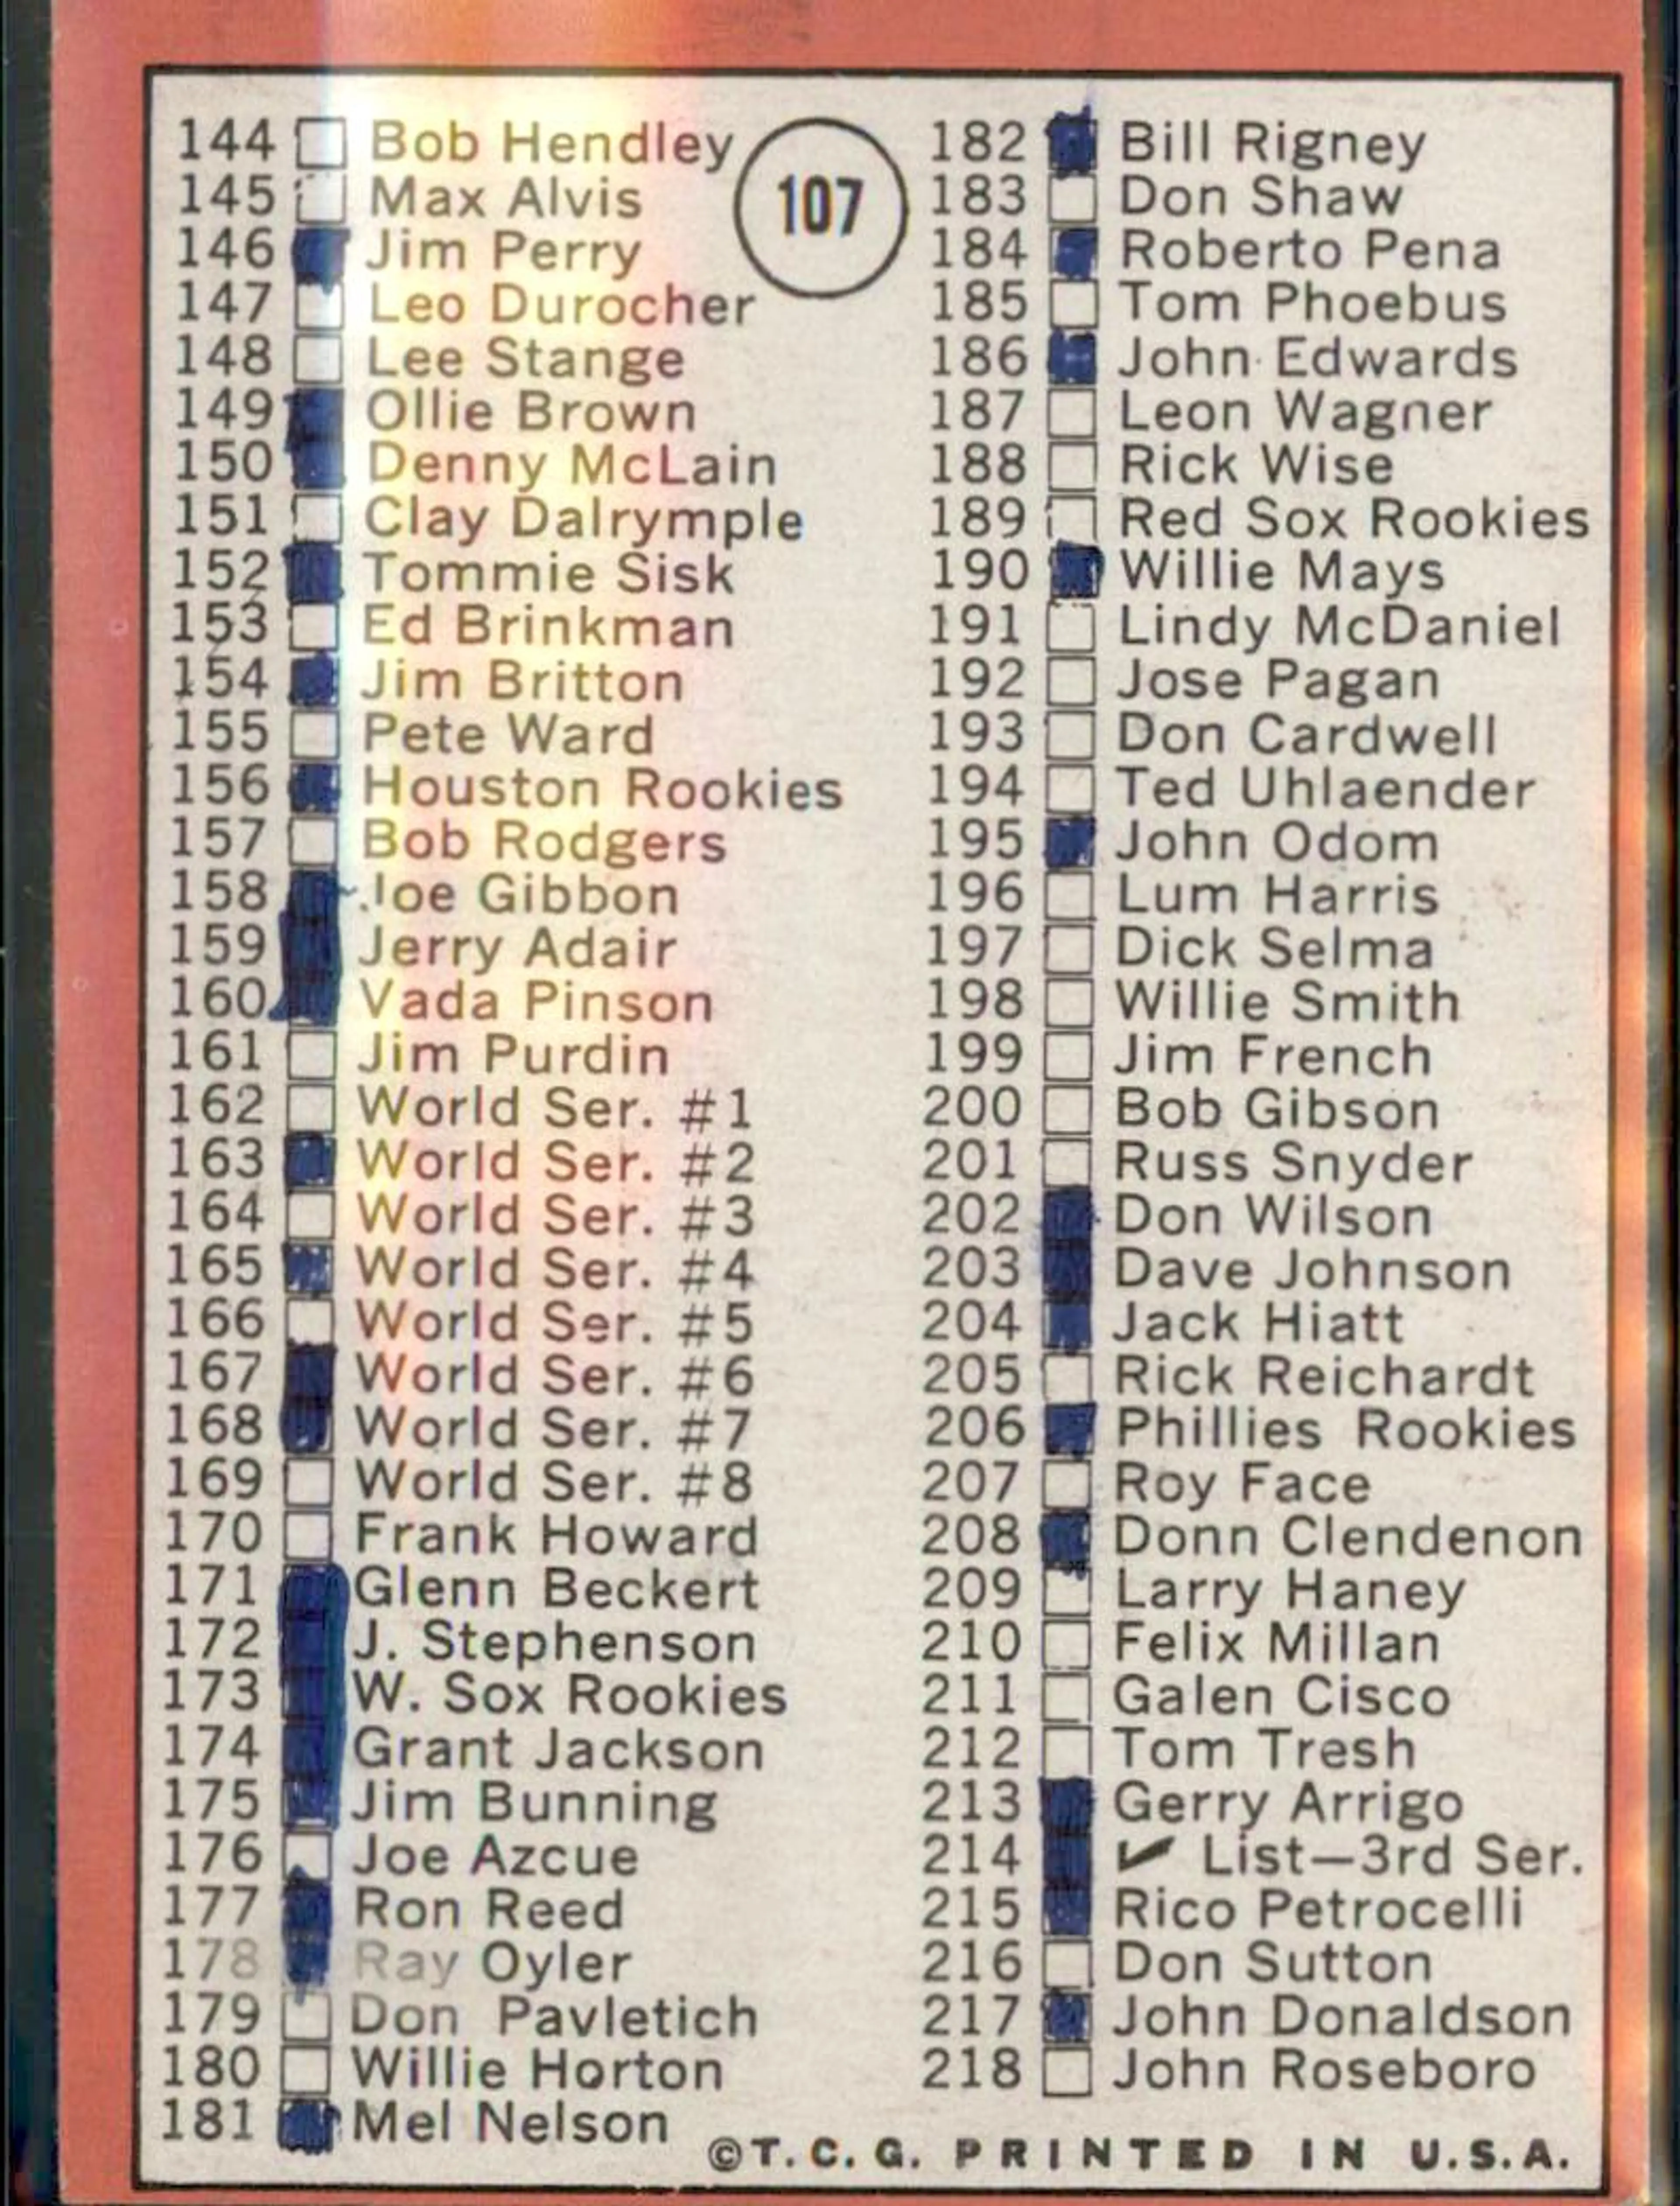 107
144 Bob Hendley
145 Max Alvis
146 Jim Perry
147 Leo Durocher
148 Lee Stange
149 Ollie Brown
150 Denny McLain
151 Clay Dalrymple
152 Tommie Sisk
153 Ed Brinkman
154 Jim Britton
155 Pete Ward
156 Houston Rookies
157 Bob Rodgers
158 Joe Gibbon
159 Jerry Adair
160 Vada Pinson
161 Jim Purdin
162 World Ser. #1
163 World Ser. #2
164 World Ser. #3
165 World Ser. #4
166 World Ser. #5
167 World Ser. #6
168 World Ser. #7
169 World Ser. #8
170 Frank Howard
171 Glenn Beckert
172 J. Stephenson
173 W. Sox Rookies
174 Grant Jackson
175 Jim Bunning
176 Joe Azcue
177 Ron Reed
178 Ray Oyler
179 Don Pavletich
180 Willie Horton
181 Mel Nelson
182 Bill Rigney
183 Don Shaw
184 Roberto Pena
185 Tom Phoebus
186 John Edwards
187 Leon Wagner
188 Rick Wise
189 Red Sox Rookies
190 Willie Mays
191 Lindy McDaniel
192 Jose Pagan
193 Don Cardwell
194 Ted Uhlaender
195 John Odom
196 Lum Harris
197 Dick Selma
198 Willie Smith
199 Jim French
200 Bob Gibson
201 Russ Snyder
202 Don Wilson
203 Dave Johnson
204 Jack Hiatt
205 Rick Reichardt
206 Phillies Rookies
207 Roy Face
208 Donn Clendenon
209 Larry Haney
210 Felix Millan
211 Galen Cisco
212 Tom Tresh
213 Gerry Arrigo
214 ✓ List—3rd Ser.
215 Rico Petrocelli
216 Don Sutton
217 John Donaldson
218 John Roseboro
©T.C.G. PRINTED IN U.S.A.